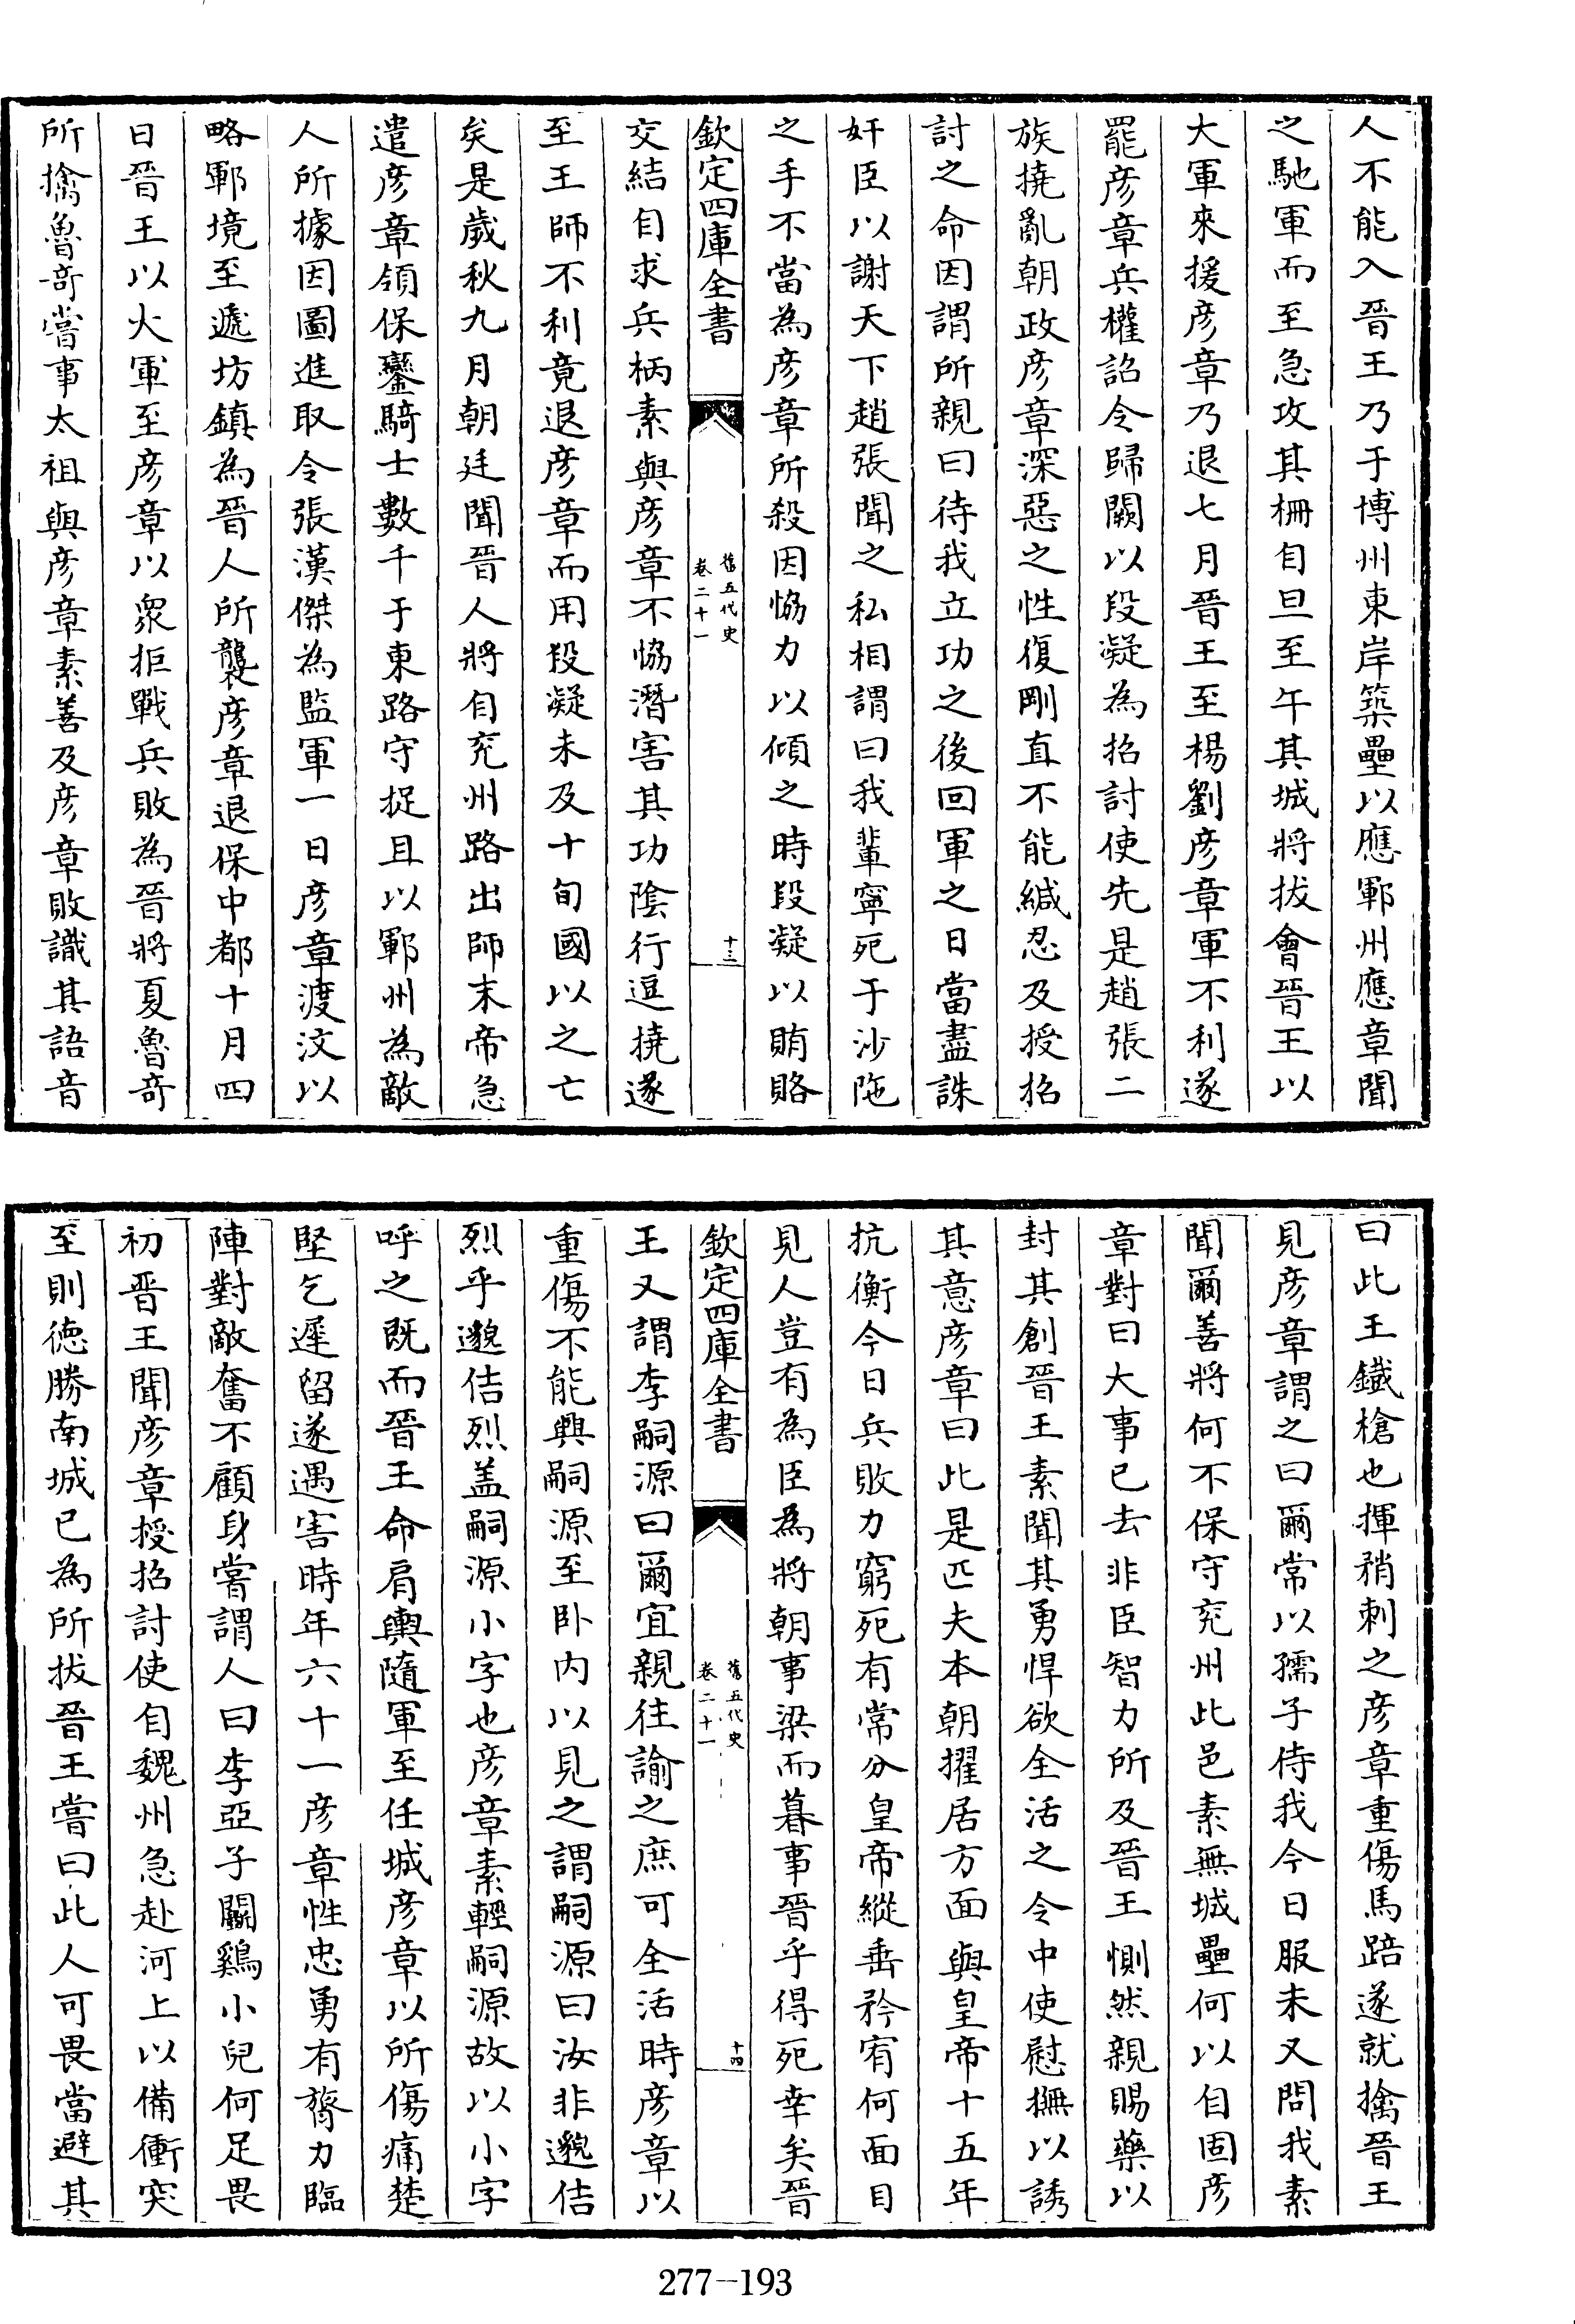 人不能入晉王乃于博州東岸築壘以應鄆州應章聞
之馳軍而至急攻其柵自旦至午其城將拔會晉王以
大軍來援彦章乃退七月晉王至楊劉彦章軍不利遂
罷彦章兵權詔令歸闕以段凝為招討使先是趙張二
族撓亂朝政彦章深惡之性復剛直不能緘忍及授招
討之命因謂所親曰待我立功之後回軍之日當盡誅
奸臣以謝天下趙張聞之私相謂曰我輩寧死于沙陁
之手不當為彦章所殺因恊力以傾之時段凝以賄賂
欽定四庫全書
舊五代史
卷二十一
十三
交結自求兵柄素與彦章不恊潛害其功陰行逗撓遂
至王師不利竟退彦章而用段凝未及十旬國以之亡
矣是歲秋九月朝廷聞晉人將自兖州路出師末帝急
遣彦章領保鑾騎士數千于東路守捉且以鄆州為敵
人所據因圖進取令張漢傑為監軍一日彦章渡汶以
略鄆境至遞坊鎮為晉人所襲彦章退保中都十月四
日晉王以大軍至彦章以衆拒戰兵敗為晉將夏魯奇
所擒魯奇嘗事太祖與彦章素善及彦章敗識其語音
曰此王鐵槍也揮矟刺之彦章重傷馬踣遂就擒晉王
見彦章謂之曰爾常以孺子待我今日服未又問我素
聞爾善將何不保守兖州此邑素無城壘何以自固彦
章對曰大事已去非臣智力所及晉王惻然親賜藥以
封其創晉王素聞其勇悍欲全活之令中使慰撫以誘
其意彦章曰此是匹夫本朝擢居方面與皇帝十五年
抗衡今日兵敗力窮死有常分皇帝縱垂矜宥何面目
見人豈有為臣為將朝事梁而暮事晉乎得死幸矣晉
欽定四庫全書
舊五代史
卷二十一
十四
王又謂李嗣源曰爾宜親往諭之庶可全活時彦章以
重傷不能興嗣源至卧内以見之謂嗣源曰汝非邈佶
烈乎邈佶烈盖嗣源小字也彦章素輕嗣源故以小字
呼之既而晉王命肩輿隨軍至任城彦章以所傷痛楚
堅乞遲留遂遇害時年六十一彦章性忠勇有膂力臨
陣對敵奮不顧身嘗謂人曰李亞子鬭鷄小兒何足畏
初晉王聞彦章授招討使自魏州急赴河上以備衝突
至則徳勝南城已為所拔晉王嘗曰此人可畏當避其
277-193